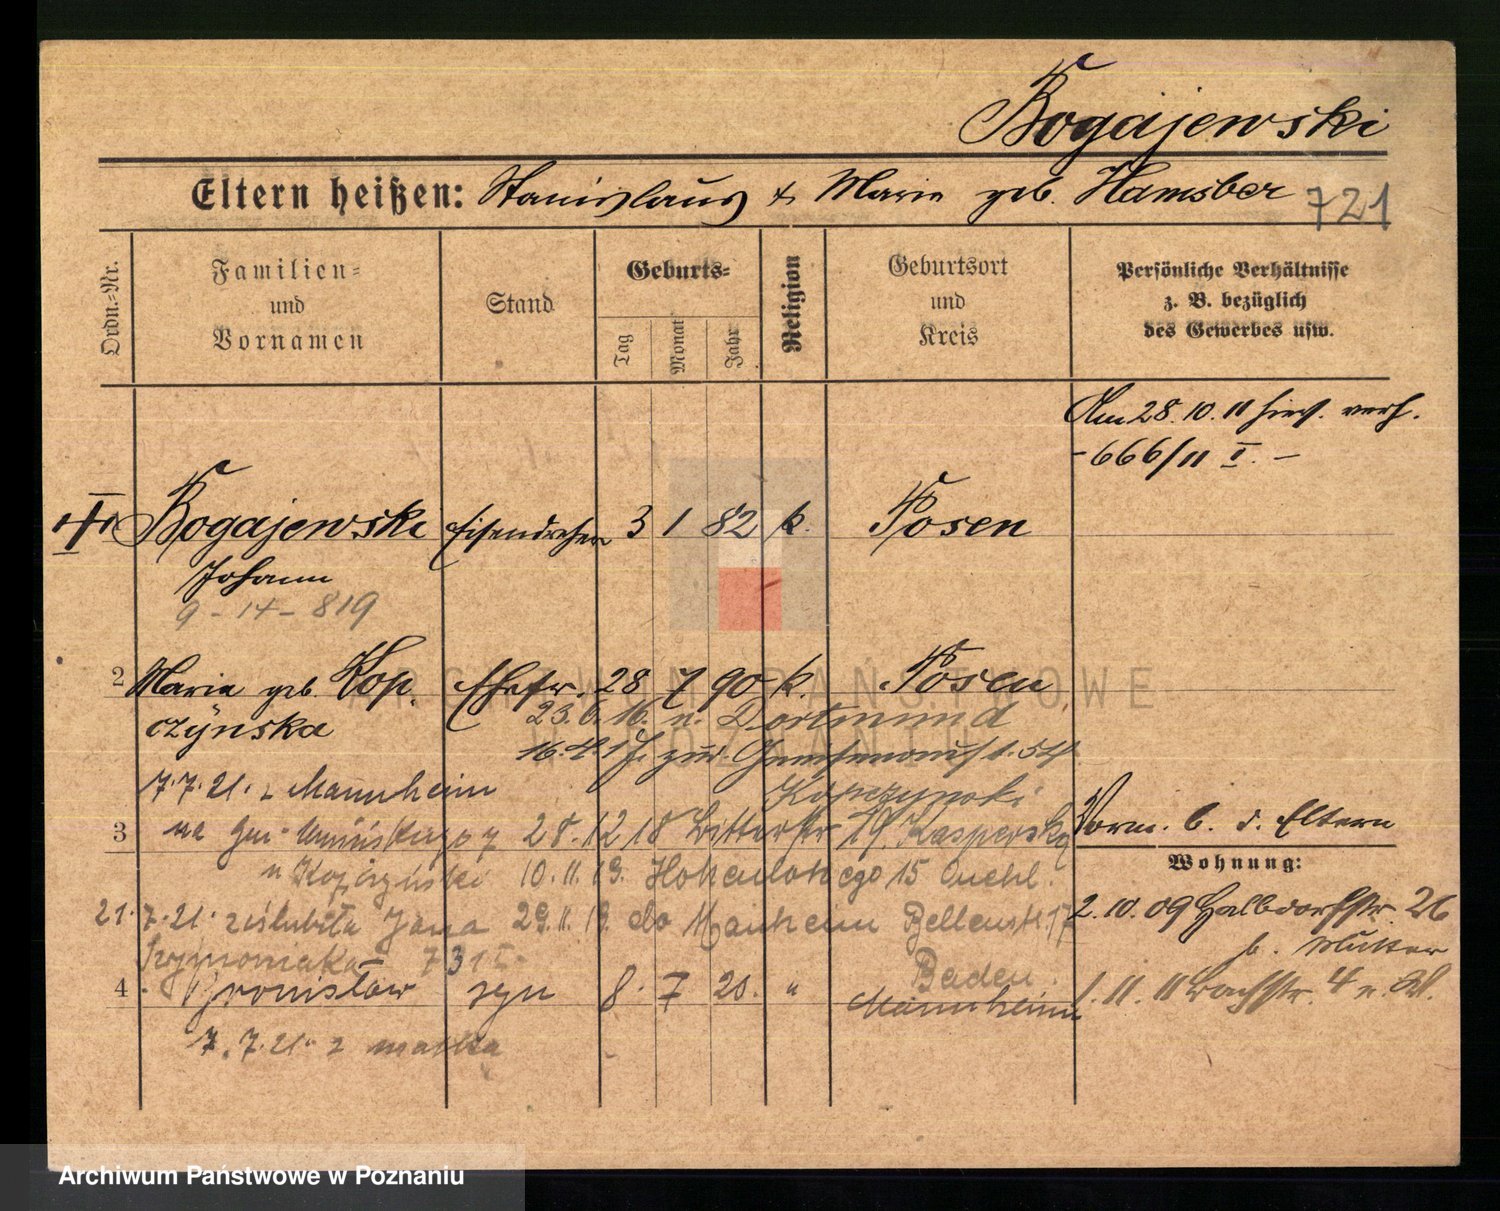 Bogajewski
Eltern heißen: Stanislaus & Marie geb. Hamsber 721
Ordn.-Nr.
Familien- und Vornamen
Stand
Geburts-
Tag
Monat
Jahr
Religion
Geburtsort und Kreis
Persönliche Verhältnisse
z. B. bezüglich
des Gewerbes usw.
Am 28.10.11 hies. verh.
-666/11 I. -
Bogajewski Eisendreher 3 1 82 k. Posen
Johann
9-14-819
2 Maria geb. Kop Ehefr. 28 7 90 k. Posen
czynska 23.6.16. n. Dortmund
16.4.17. zur
7.7.21. z Mannheim
Kopczynski
3 28.12.18 Ritterstr 29. Kasperska
Vorm. b. d. Eltern
Wohnung:
10.11.19. Hohenlohego 15 Kuchl.
2.10.09 Halbdorfstr. 26
b. Mutter
21.7.21. zaślubiła Jana 29.11.19. do Manheim Bellenstr. 17
731 I
Baden
4 Bronisław syn 8. 7 20. " Mannheim
1.11.11 Bachstr. 4
7.7.21. z matką
ARCHIWUM PAŃSTWOWE
W POZNANIU
Archiwum Państwowe w Poznaniu